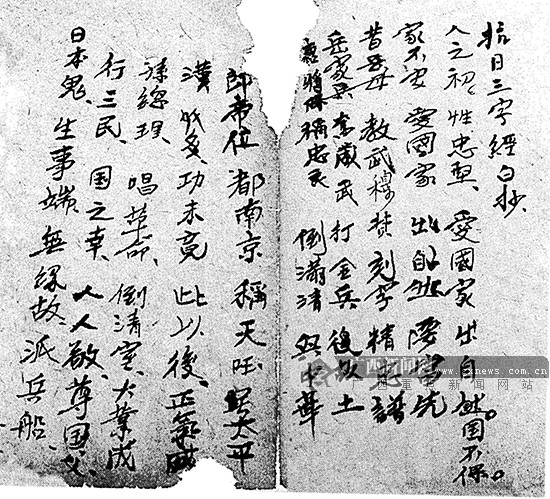 抗日三字經白抄、
人之初、性忠堅、愛國家 出自然國不保。
家不安 愛國家 出自然
昔岳母 教武穆 刻字 精忠譜
岳家兵 武 打金兵 復故土
稱忠民 倒滿清 興中華
即帝位 都南京 稱天王 太平
漢 功未竟 此以後、正氣
孫總理、唱革命、倒清室、大業成
行三民、国之幸、人人敬、尊国父、
日本鬼、生事端、無緣故、派兵船、
西新闻网
www.gxnews.com.cn
广西重点新闻网站